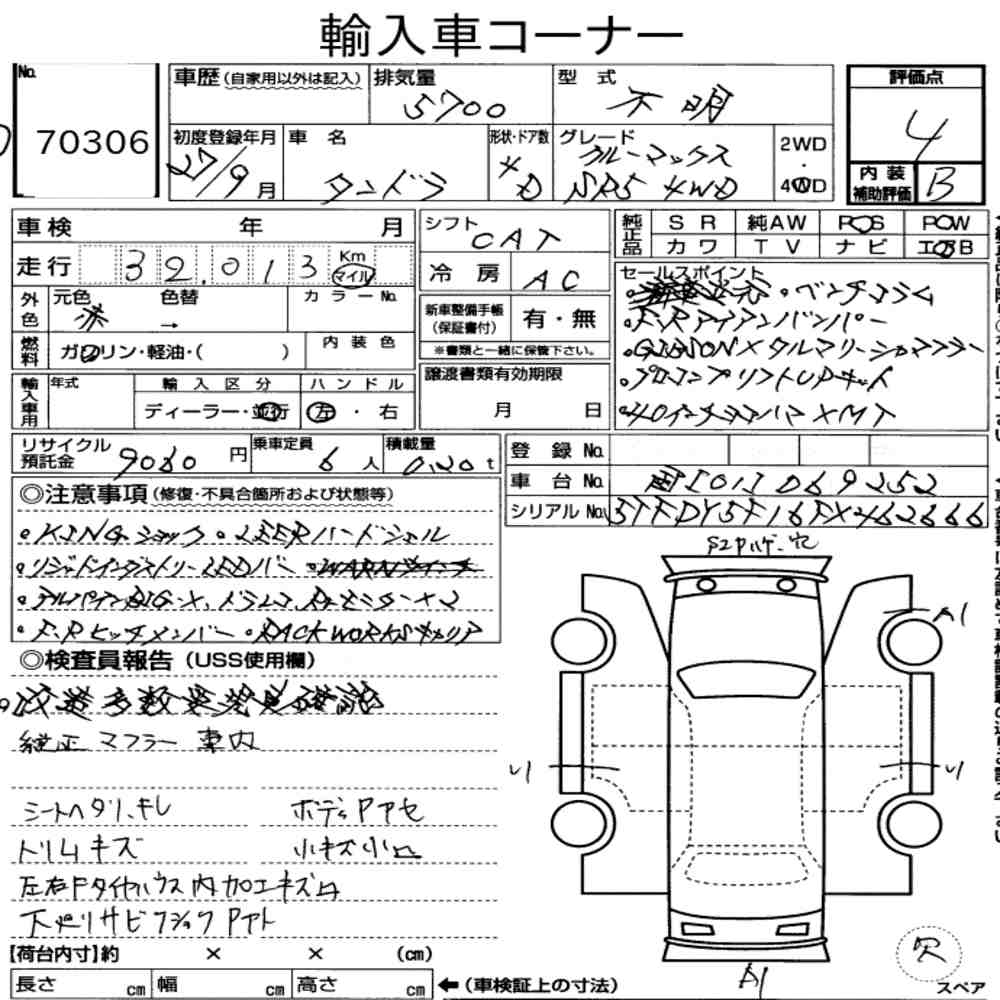 輸入車コーナー
No. 70306
車歴(自家用以外は記入)
排気量 5700
型式 不明
評価点 4
初度登録年月 27/9月
車名 タンドラ
形状・ドア数 4D
グレード クルーマックス
SR5 4WD
2WD・4WD
内装補助評価 B
車検 年 月
シフト CAT
純正品 SR 純AW PS PW
カワ TV ナビ エアB
走行 32.013 Km マイル
冷房 AC
セールスポイント
外色 元色 赤 色替 → カラーNo.
・ベンチコラム
新車整備手帳(保証書付) 有・無
※書類と一緒に保管下さい。
・F.Rアイアンバンパー
燃料 ガソリン・軽油・( ) 内装色
・GIBSONメタルマリーシャマフラー
輸入車用 年式 輸入区分 ディーラー・並行 ハンドル 左・右
譲渡書類有効期限 月 日
・プロコンプリフトUPキット
・40インチヨコハマ×MT
リサイクル預託金 9080円
乗車定員 6人
積載量 0.20t
登録No.
車台No. 国[01]069252
シリアルNo. 5TFDY5F16FX462666
◎注意事項(修復・不具合箇所および状態等)
・KINGショック・LSERハードシェル
・リジットインダストリーLEDバー
・アルパインBIG-X、ドラレコ、Rモニター×2
・F.Rヒッチメンバー・RACKWORKSキャリア
◎検査員報告(USS使用欄)
。改造多数要発見確認
純正マフラー車内
シートヘタリ、キレ
ボディPアセ
トリムキズ
小キズ小凹
左右Fタイヤハウス内加工キズ凹
下廻リサビフショックPアト
A1
リ
リ
A1
欠
スペア
【荷台内寸】約 × × (cm)
長さ cm 幅 cm 高さ cm
←(車検証上の寸法)